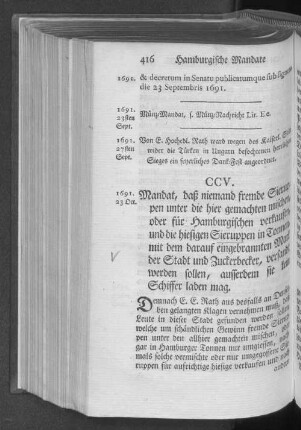 416 Hamburgische Mandate
1691. & decretum in Senatu publicatumque sub
die 23 Septembris 1691.
1691.
23sten
Sept.
Müntz-Mandat, s. Müntz-Nachricht Lit.
1691.
27sten
Sept.
Von E. Hochedl. Rath ward wegen des Kaiserl.
wider die Türken in Ungarn befochtenen herrlichen
Sieges ein feyerliches Dank-Fest angeordnet.
CCV.
1691.
23 Oct.
Mandat, daß niemand fremde Sierup-
pen unter die hier gemachten mischen,
oder für Hamburgischen verkauffen
und die hiesigen Sieruppen in Tonnen
mit dem darauf eingebrannten
der Stadt und Zuckerbecker,
werden sollen, ausserdem sie kein
Schiffer laden mag.
Demnach E. E. Rath aus desfalls an
ten gelangten Klagen vernehmen muß,
Leute in dieser Stadt gefunden werden,
welche um schändlichen Gewinn fremde
pen unter den allhier gemachten mischen,
gar in Hamburger Tonnen nur umgiessen,
mals solche vermischte oder nur umgegossene
ruppen für aufrichtige hiesige verkauffen und